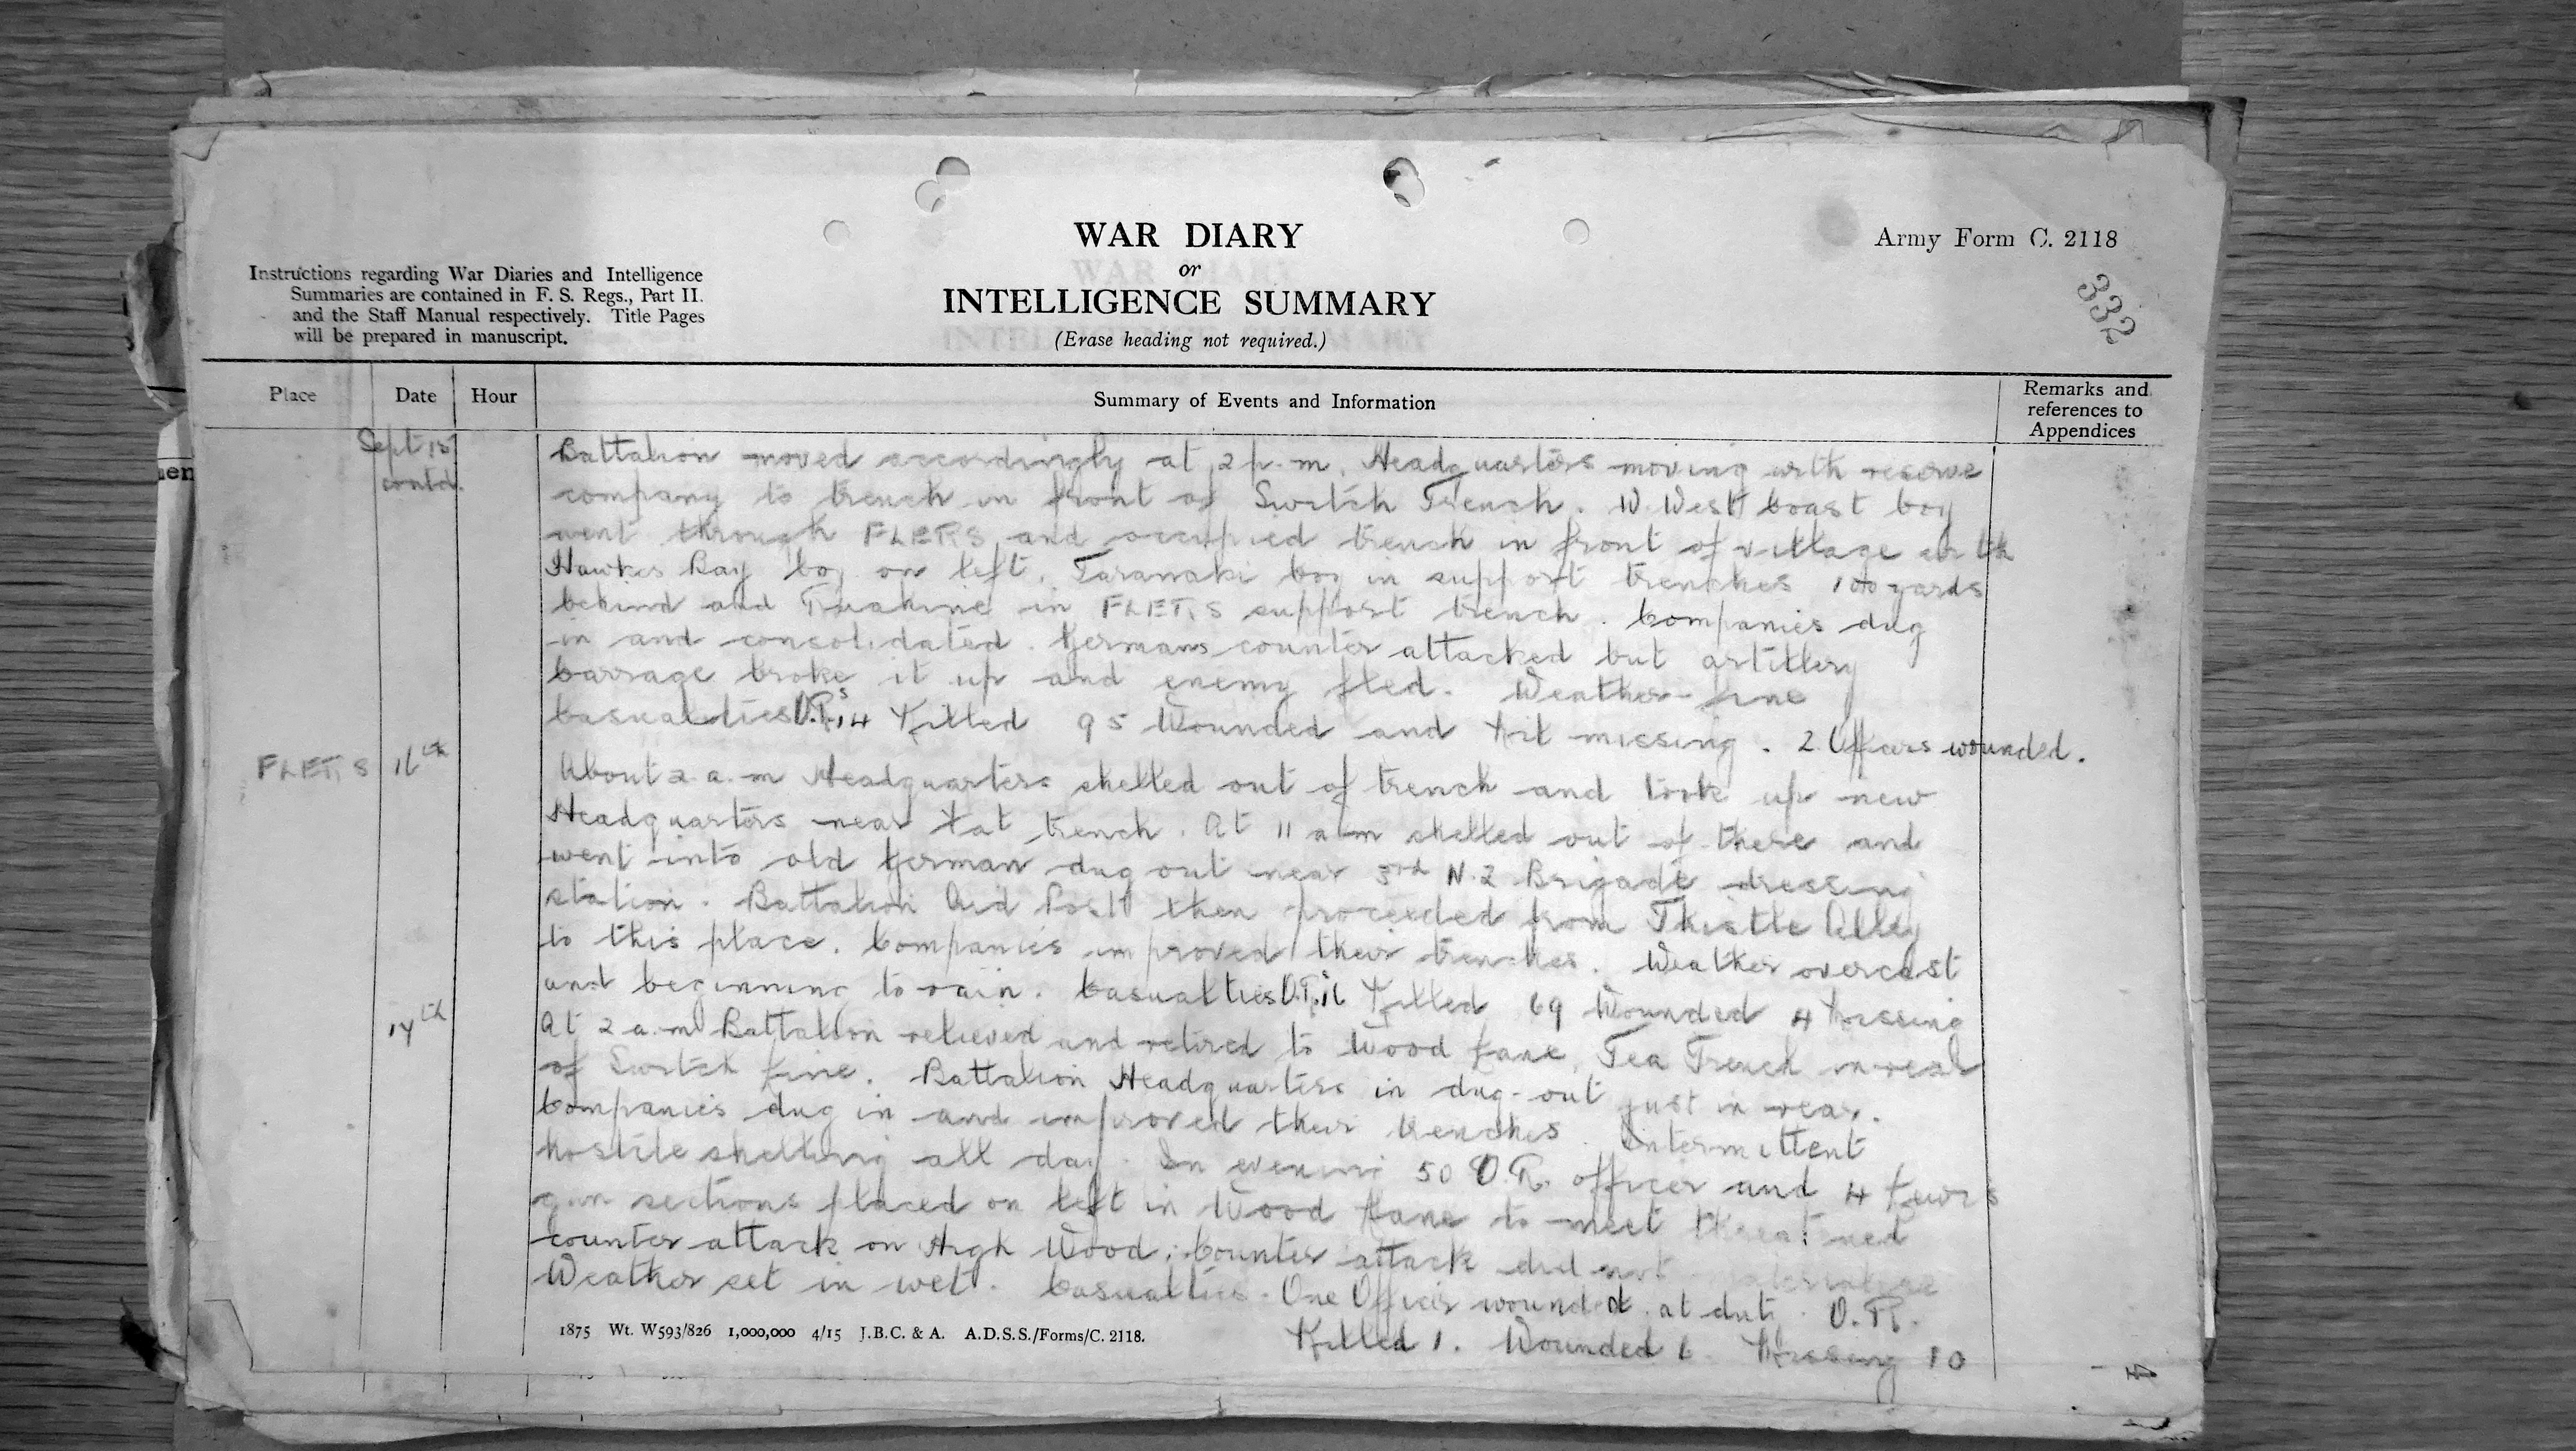 WAR DIARY
or
INTELLIGENCE SUMMARY
(Erase heading not required.)
Army Form C. 2118
332
Instructions regarding War Diaries and Intelligence
Summaries are contained in F. S. Regs., Part II.
and the Staff Manual respectively. Title Pages
will be prepared in manuscript.
Place Date Hour Summary of Events and Information Remarks and references to Appendices
Sept 15 contd.
Battalion moved accordingly at 2 p.m. Headquarters moving with reserve
company to trench in front of Switch Trench. W. West Coast Coy
went through FLERS and occupied trench in front of village with
Hawkes Bay Coy on left. Taranaki Coy in support trenches 100 yards
behind and Ruahine in FLERS support trench. Companies dug
in and consolidated. Germans counter attacked but artillery
barrage broke it up and enemy fled. Weather fine
Casualties O.R.s 14 Killed 95 Wounded and Nil missing. 2 Officers wounded.
FLERS 16th About 2 a.m Headquarters shelled out of trench and took up new
Headquarters near Fat trench. At 11 a m shelled out of there and
went into old German dug out near 3rd N.Z Brigade dressing
station. Battalion Aid Post then proceeded from Thistle Alley
to this place. Companies improved their trenches. Weather overcast
and beginning to rain. Casualties O.R. 16 Killed 69 Wounded 4 Missing
17th At 2 a.m Battalion relieved and retired to Wood Lane, Tea Trench in rear
of Switch Line. Battalion Headquarters in dug-out just in rear.
Companies dug in and improved their trenches. Intermittent
hostile shelling all day. In evening 50 O.R. officer and 4 Lewis
gun sections placed on left in Wood Lane to meet threatened
counter attack on High Wood. Counter attack did not materialise
Weather set in wet. Casualties. One Officer wounded at duty. O.R.
Killed 1. Wounded 6 Missing 10
1875 Wt. W593/826 1,000,000 4/15 J.B.C. & A. A.D.S.S./Forms/C. 2118.